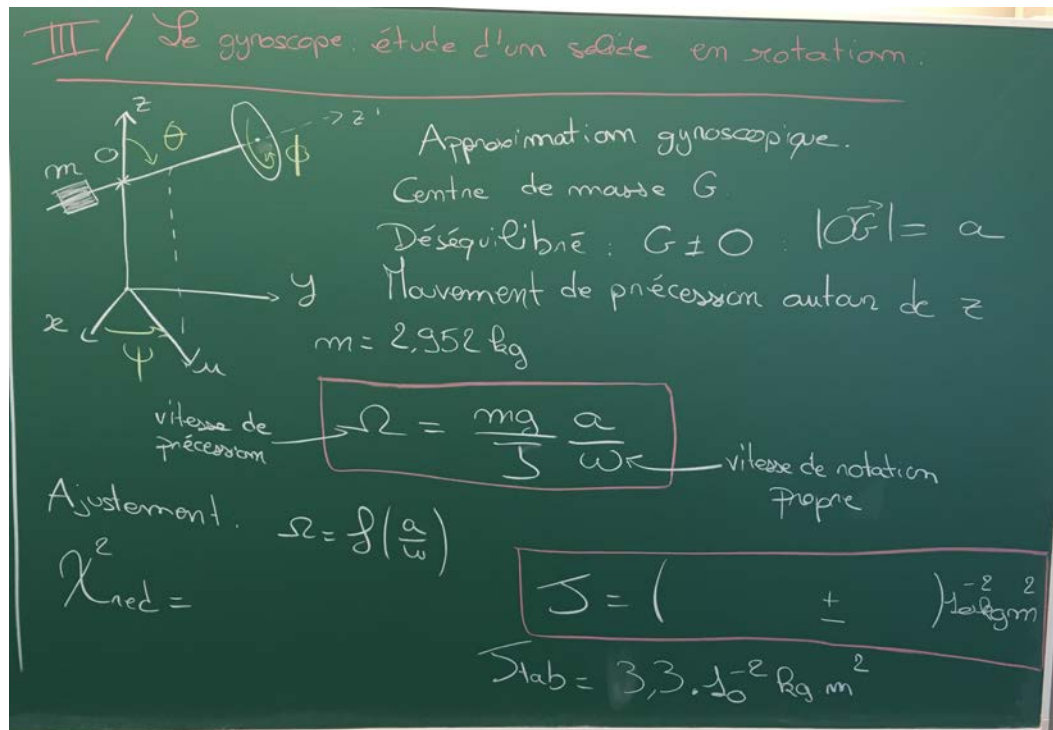 III / Le gyroscope. étude d'un solide en rotation.
z
θ
z'
O
ϕ
m
Approximation gyroscopique.
Centre de masse G.
Déséquilibré : G ≠ O : |OG| = a
y
Mouvement de précession autour de z
x
ψ
u
m = 2,952 kg
vitesse de précession
Ω = mg/J a/ω
vitesse de rotation propre
Ajustement. Ω = f(a/ω)
χ²red =
J = ( ± ) 10⁻² kg m²
Jtab = 3,3 . 10⁻² kg m²